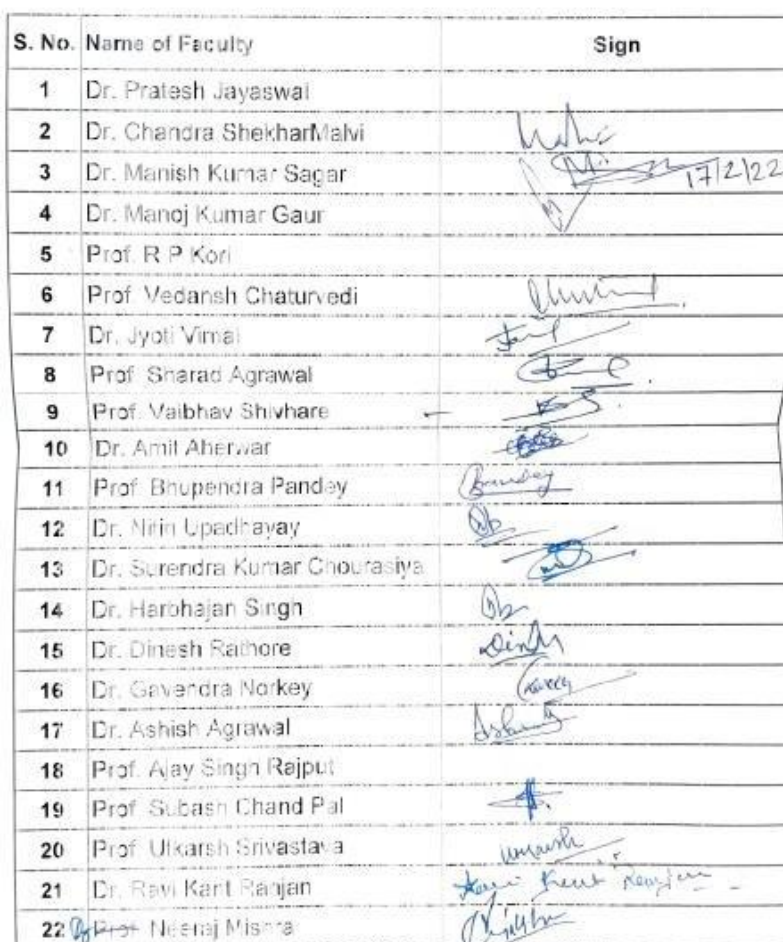 S. No. Name of Faculty Sign
1 Dr. Pratesh Jayaswal
2 Dr. Chandra ShekharMalvi
3 Dr. Manish Kumar Sagar 17/2/22
4 Dr. Manoj Kumar Gaur
5 Prof. R P Kori
6 Prof. Vedansh Chaturvedi
7 Dr. Jyoti Vimal
8 Prof. Sharad Agrawal
9 Prof. Vaibhav Shivhare
10 Dr. Amit Aherwar
11 Prof. Bhupendra Pandey Pandey
12 Dr. Nitin Upadhayay
13 Dr. Surendra Kumar Chourasiya
14 Dr. Harbhajan Singh
15 Dr. Dinesh Rathore
16 Dr. Gavendra Norkey
17 Dr. Ashish Agrawal
18 Prof. Ajay Singh Rajput
19 Prof. Subash Chand Pal
20 Prof. Utkarsh Srivastava
21 Dr. Ravi Kant Ranjan Ravi Kant Ranjan
22 Dr Prof Neeraj Mishra